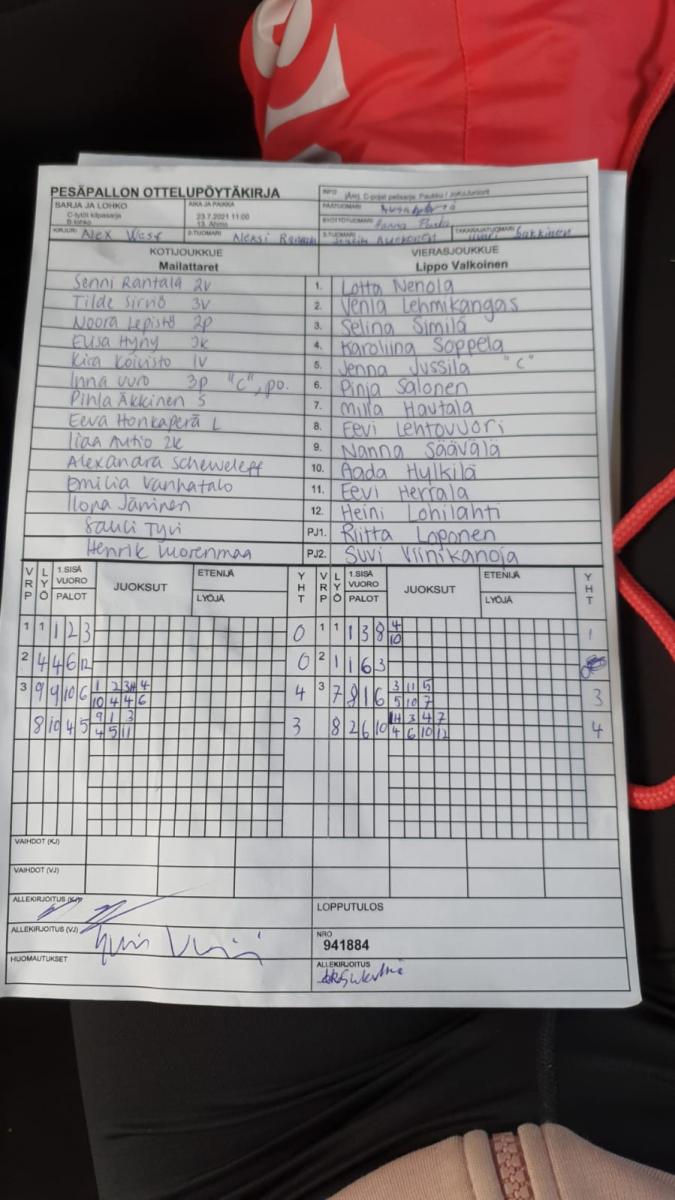 PESÄPALLON OTTELUPÖYTÄKIRJA
SARJA JA LOHKO
C-tytöt kilpasarja
B-lohko
AIKA JA PAIKKA
23.7.2021 11:00
13. Ahmo
INFO
C-pojat pelisarja:
PÄÄTUOMARI
SYÖTTÖTUOMARI
KIRJURI Alex West
2-TUOMARI Aleksi
3-TUOMARI
TAKARAJATUOMARI
KOTIJOUKKUE
Mailattaret
VIERASJOUKKUE
Lippo Valkoinen
Senni Rantala 2v 1. Lotta Nenola
Tilde Sirviö 3v 2. Venla Lehmikangas
Noora Lepistö 2p 3. Selina Similä
Elisa Hyny 3k 4. Karoliina Soppela
Kira Koivisto 1v 5. Jenna Jussila "C"
Inna Vuro 3p "C", po. 6. Pinja Salonen
Pihla Äkkinen S 7. Milla Hautala
Eeva Honkaperä L 8. Eevi Lehtovuori
Iiaa Autio 2k 9. Nanna Säävälä
Alexandra Scheweleff 10. Aada Hylkilä
Emilia Vanhatalo 11. Eevi Herrala
Ilona Jäminen 12. Heini Lohilahti
Sauli Tyvi PJ1. Riitta Loponen
Henrik Vuorenmaa PJ2. Suvi Viinikanoja
VRP LYÖ 1.SISÄ VUORO PALOT JUOKSUT ETENIJÄ LYÖJÄ YHT VRP LYÖ 1.SISÄ VUORO PALOT JUOKSUT ETENIJÄ LYÖJÄ YHT
1 1 1 2 3 0 1 1 1 3 8 4 1
10
2 4 4 6 12 0 2 1 1 6 3
3 9 9 10 6 1 2 3 4 4 3 7 8 1 6 3 11 5 3
10 4 4 6 5 10 7
8 10 4 5 9 1 3 3 8 2 6 10 3 4 7 4
4 5 11 4 6 10 12
VAIHDOT (KJ)
VAIHDOT (VJ)
ALLEKIRJOITUS (KJ)
LOPPUTULOS
ALLEKIRJOITUS (VJ)
NRO
941884
HUOMAUTUKSET
ALLEKIRJOITUS